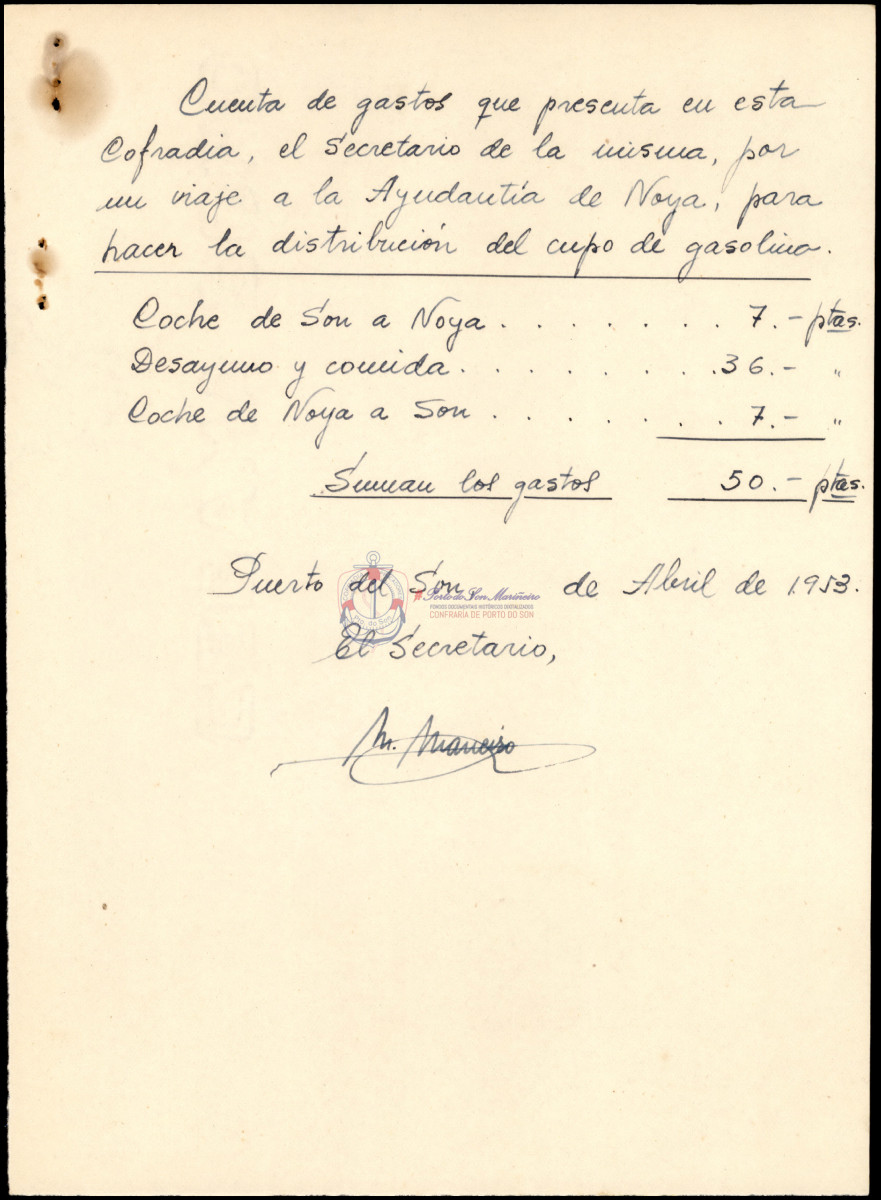 Cuenta de gastos que presenta en esta
Cofradia, el Secretario de la misma, por
un viaje a la Ayudantía de Noya, para
hacer la distribución del cupo de gasolina.
Coche de Son a Noya . . . . . . . 7.- ptas.
Desayuno y comida . . . . . . . . . 36.- "
Coche de Noya a Son . . . . . . . 7.- "
Suman los gastos 50.- ptas.
Puerto del Son de Abril de 1.953.
Porto do Son Mariñeiro
FONDOS DOCUMENTAIS HISTÓRICOS DIXITALIZADOS
CONFRARÍA DE PORTO DO SON
Pto. do Son
El Secretario,
M. Maneiro